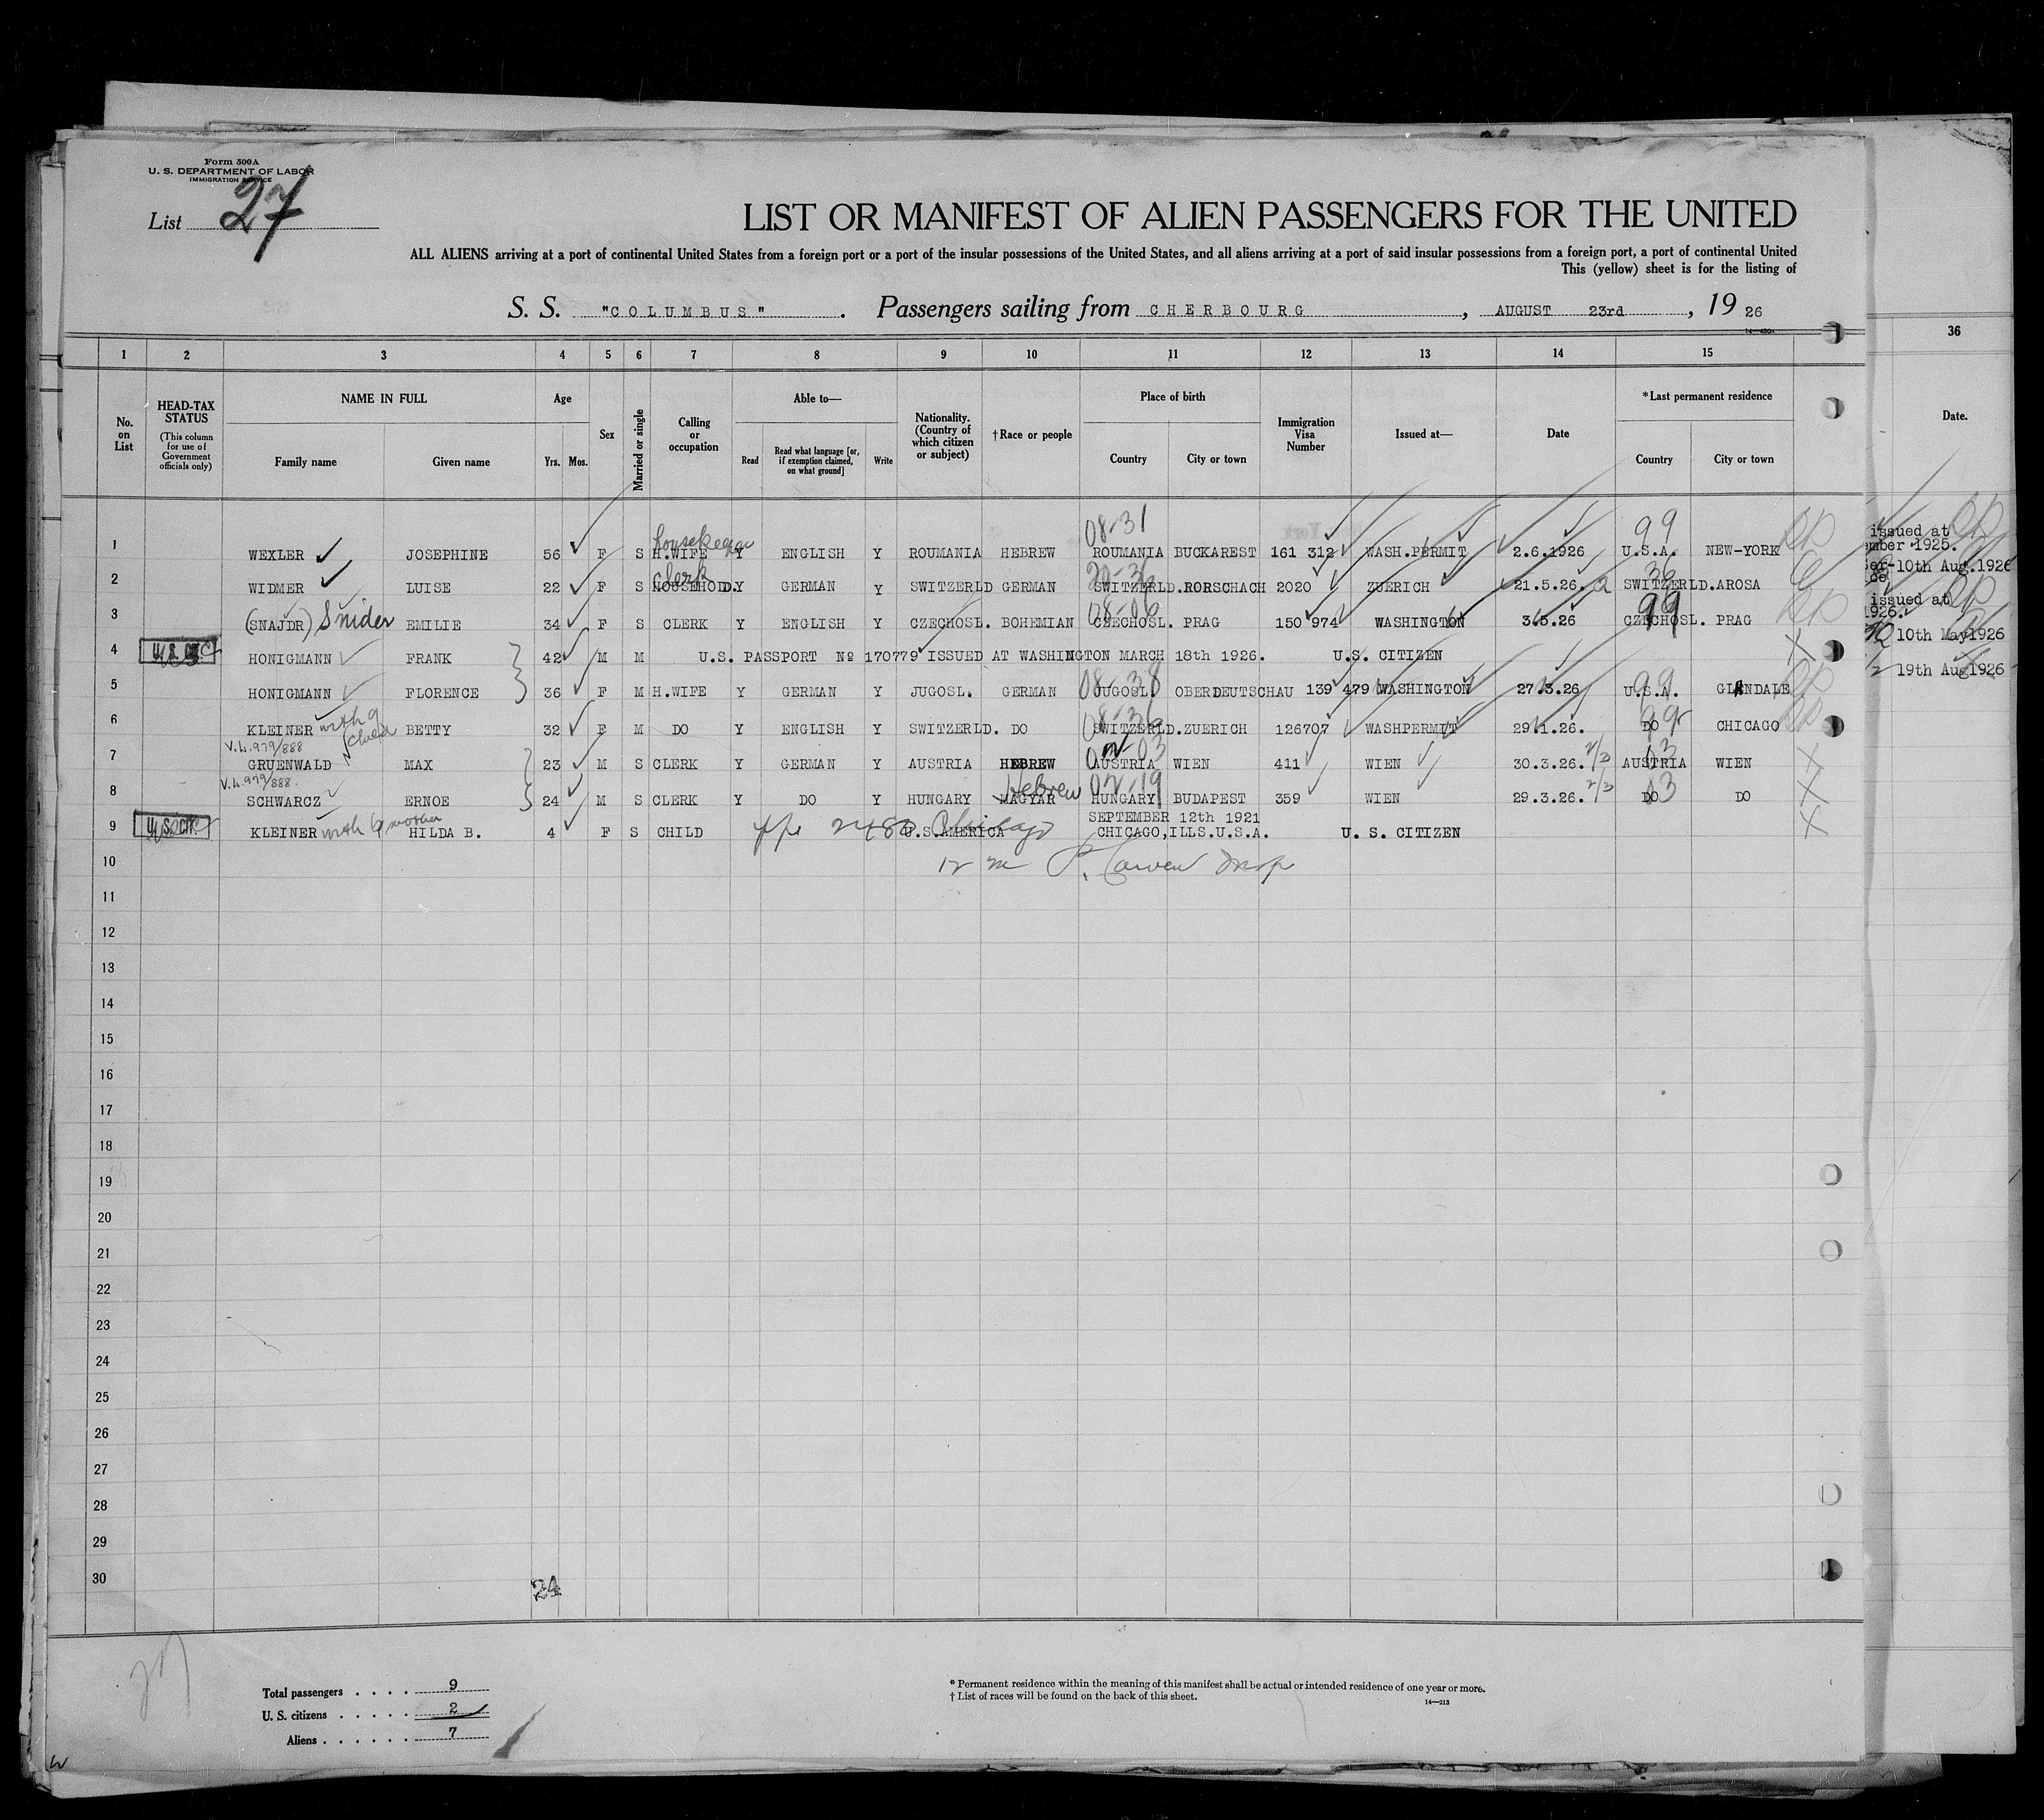 Form 500A
U. S. DEPARTMENT OF LABOR
IMMIGRATION SERVICE
List 27
LIST OR MANIFEST OF ALIEN PASSENGERS FOR THE UNITED
ALL ALIENS arriving at a port of continental United States from a foreign port or a port of the insular possessions of the United States, and all aliens arriving at a port of said insular possessions from a foreign port, a port of continental United
This (yellow) sheet is for the listing of
S. S. "COLUMBUS". Passengers sailing from CHERBOURG, AUGUST 23rd, 19 26
1 2 3 4 5 6 7 8 9 10 11 12 13 14 15 36
No. on List
HEAD-TAX STATUS (This column for use of Government officials only)
NAME IN FULL
Family name Given name
Age
Yrs. Mos.
Sex
Married or single
Calling or occupation
Able to—
Read Read what language [or, if exemption claimed, on what ground] Write
Nationality. (Country of which citizen or subject)
†Race or people
Place of birth
Country City or town
Immigration Visa Number
Issued at—
Date
*Last permanent residence
Country City or town
Date.
08-31 99
Housekeeper
1 WEXLER JOSEPHINE 56 F S H.WIFE Y ENGLISH Y ROUMANIA HEBREW ROUMANIA BUCKAREST 161 312 WASH.PERMIT 2.6.1926 U.S.A. NEW-YORK
issued at
ember 1925.
Clerk 36
2 WIDMER LUISE 22 F S HOUSEHOLD. Y GERMAN Y SWITZERLD GERMAN SWITZERLD.RORSCHACH 2020 ZUERICH 21.5.26. SWITZERLD.AROSA
10th Aug.1926
issued at
1926.
3 (SNAJDR) Snider EMILIE 34 F S CLERK Y ENGLISH Y CZECHOSL. BOHEMIAN CZECHOSL. PRAG 150 974 WASHINGTON 3.5.26 99 CZECHOSL. PRAG
10th May1926
4 U.S. CIT HONIGMANN FRANK 42 M M U.S. PASSPORT No 170779 ISSUED AT WASHINGTON MARCH 18th 1926. U.S. CITIZEN
19th Aug1926
08-38 99
5 HONIGMANN FLORENCE 36 F M H.WIFE Y GERMAN Y JUGOSL. GERMAN JUGOSL. OBERDEUTSCHAU 139 479 WASHINGTON 27.3.26 U.S.A. GLANDALE
08-36 99
6 KLEINER with 9 child BETTY 32 F M DO Y ENGLISH Y SWITZERLD. DO SWITZERLD.ZUERICH 126707 WASHPERMIT 29.1.26. DO CHICAGO
V.L.979/888
7 GRUENWALD MAX 23 M S CLERK Y GERMAN Y AUSTRIA HEBREW AUSTRIA WIEN 411 WIEN 30.3.26. AUSTRIA WIEN
V.L.979/888.
Hebrew 02-19
8 SCHWARCZ ERNOE 24 M S CLERK Y DO Y HUNGARY MAGYAR HUNGARY BUDAPEST 359 WIEN 29.3.26. DO DO
SEPTEMBER 12th 1921
9 U.S. CIT KLEINER with 6 mother HILDA B. 4 F S CHILD U.S.AMERICA Chicago CHICAGO,ILLS.U.S.A. U. S. CITIZEN
10
11
12
13
14
15
16
17
18
19
20
21
22
23
24
25
26
27
28
29
30
24
27
Total passengers . . . . 9
U. S. citizens . . . . . 2
Aliens . . . . . . 7
* Permanent residence within the meaning of this manifest shall be actual or intended residence of one year or more.
† List of races will be found on the back of this sheet.
14—213